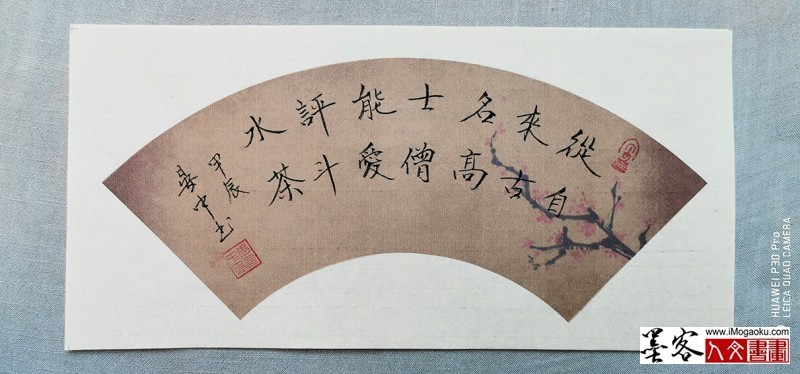 從來名士能評水
自古高僧愛斗茶
甲辰
中书
HUAWEI P30 Pro
LEICA QUAD CAMERA
墨客
www.iMogaoku.com
人文書畫